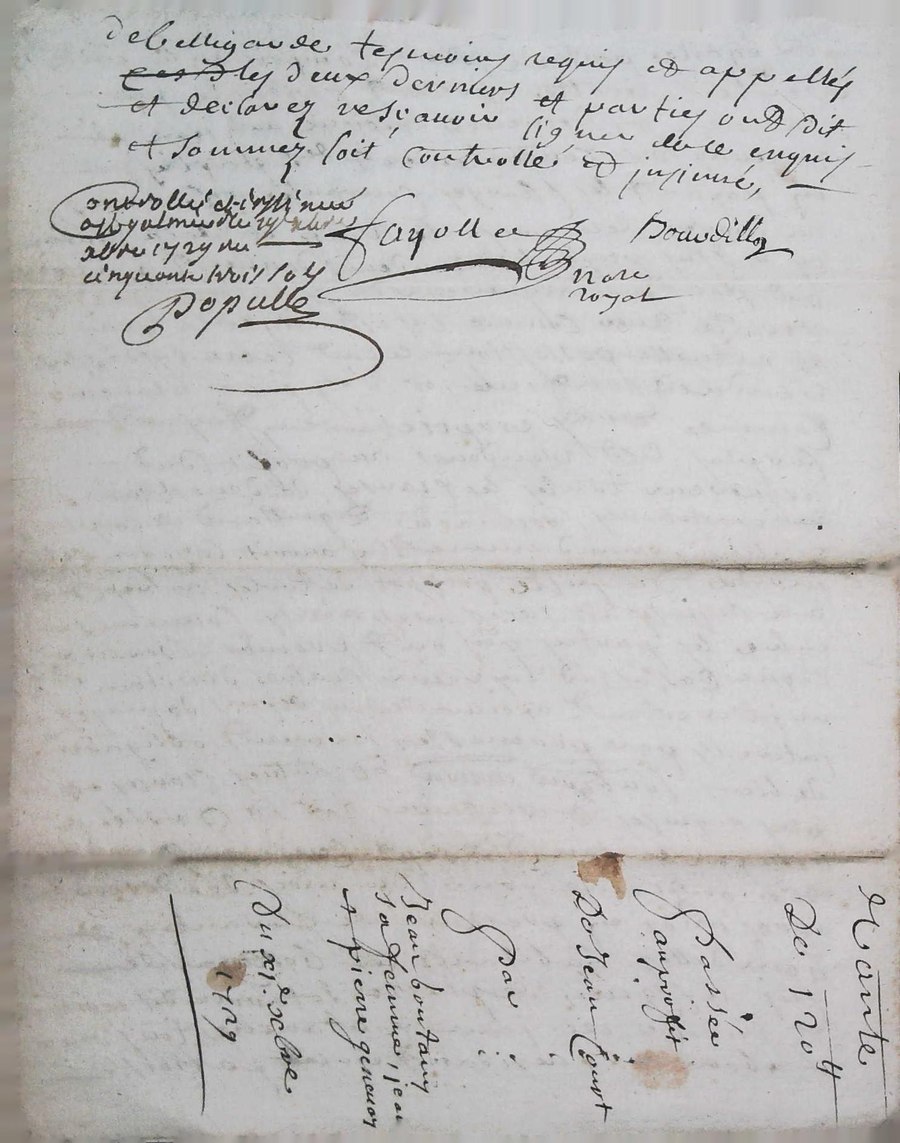 de belligarde tesmoins requis et appellés
les deux derniers et parties ont dit
et declarez ne scavoir signer de ce enquis
et sommez soit controllé et insinué,
Controllé et insinué
a st galmier le
xbre 1729 Reçu
cinquante trois sols
Populle
Fayolle
Bourdillon
No.re
royal
Vante
De 120 ₶
Passée
Au proffit
De Jean Court
Par
Jean
sa femme, jean
& pierre
Du XI.e xbre
1729